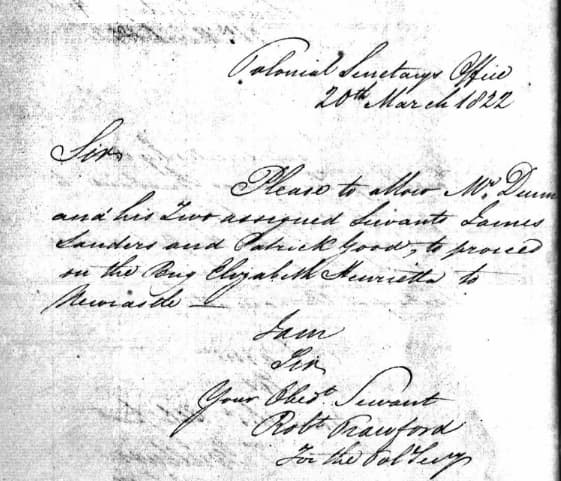 Colonial Secretarys Office
20th March 1822
Sir,
Please to allow Mr. Dunn
and his Two assigned Servants James
Sanders and Patrick Good, to proceed
on the Brig Elizabeth Henrietta to
Newcastle —
I am
Sir
Your Obedt. Servant
Robt. Crawford
For the Col Secy